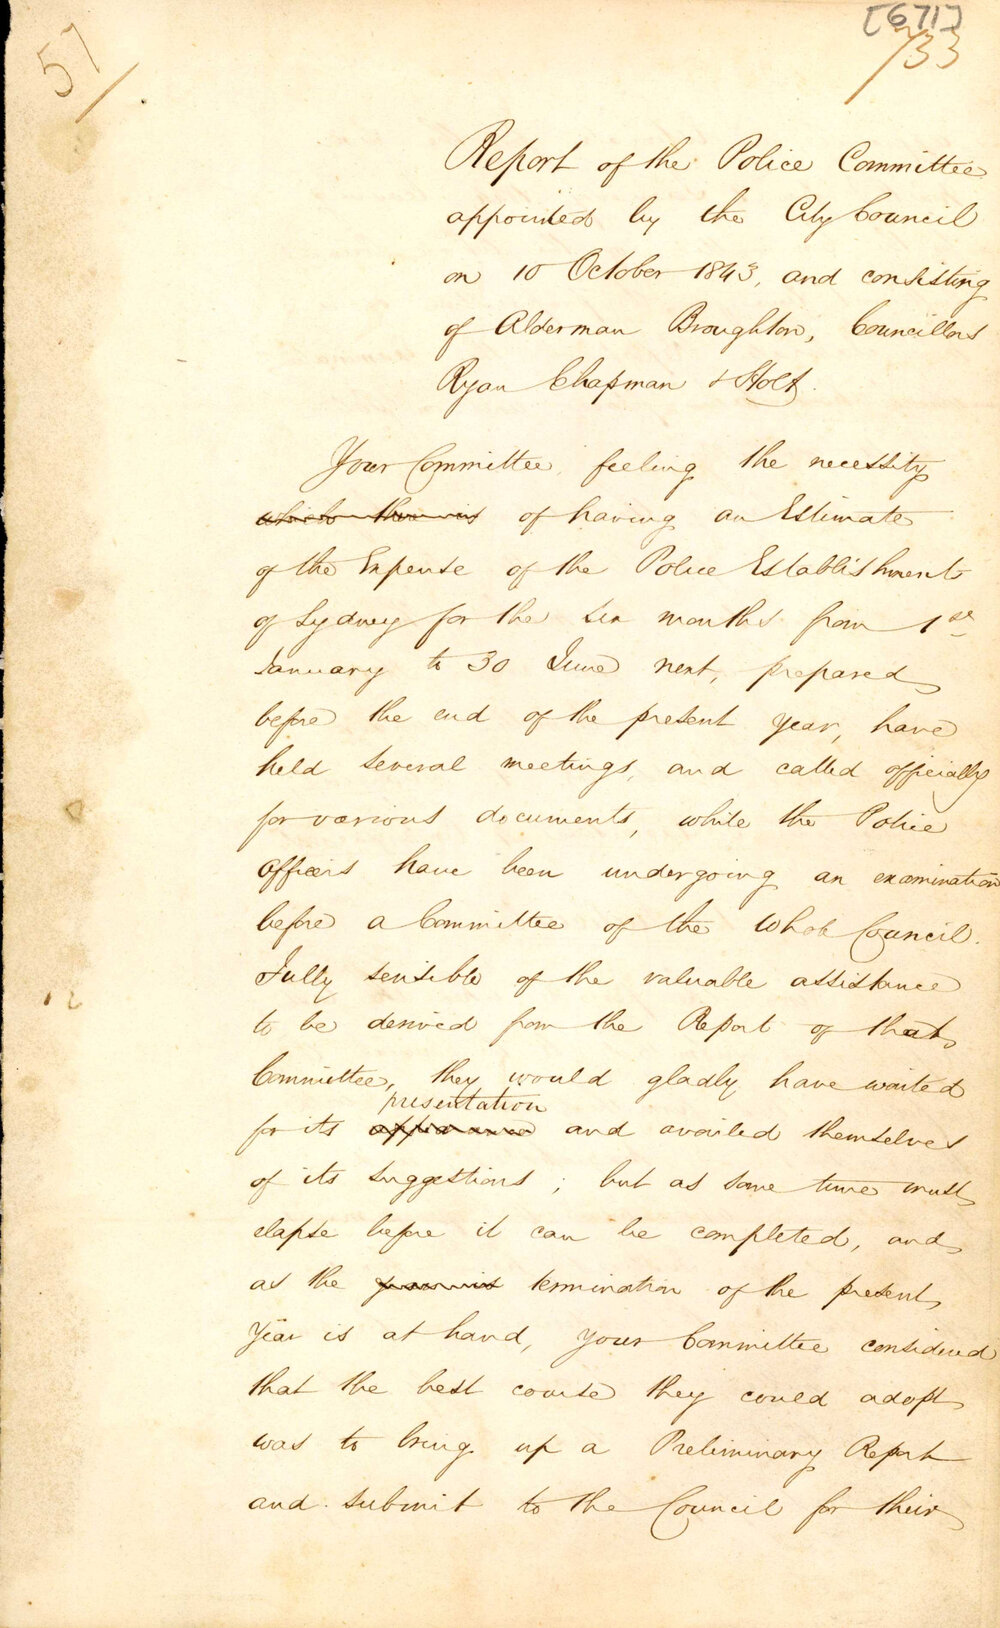 57/
[671]
733
Report of the Police Committee
appointed by the City Council
on 10 October 1843, and consisting
of Alderman Broughton, Councillors
Ryan Chapman & Holt.
Your Committee, feeling the necessity
which there is of having an Estimate
of the Expense of the Police Establishment
of Sydney for the six months from 1st
January to 30 June next, prepared
before the end of the present year, have
held several meetings, and called officially
for various documents, while the Police
Officers have been undergoing an examination
before a Committee of the whole Council.
Fully sensible of the valuable assistance
to be derived from the Report of that
Committee, they would gladly have waited
presentation
for its appearance and availed themselves
of its suggestions; but as some time must
elapse before it can be completed, and
as the termination of the present
Year is at hand, your Committee considered
that the best course they could adopt
was to bring up a Preliminary Report
and submit to the Council for their